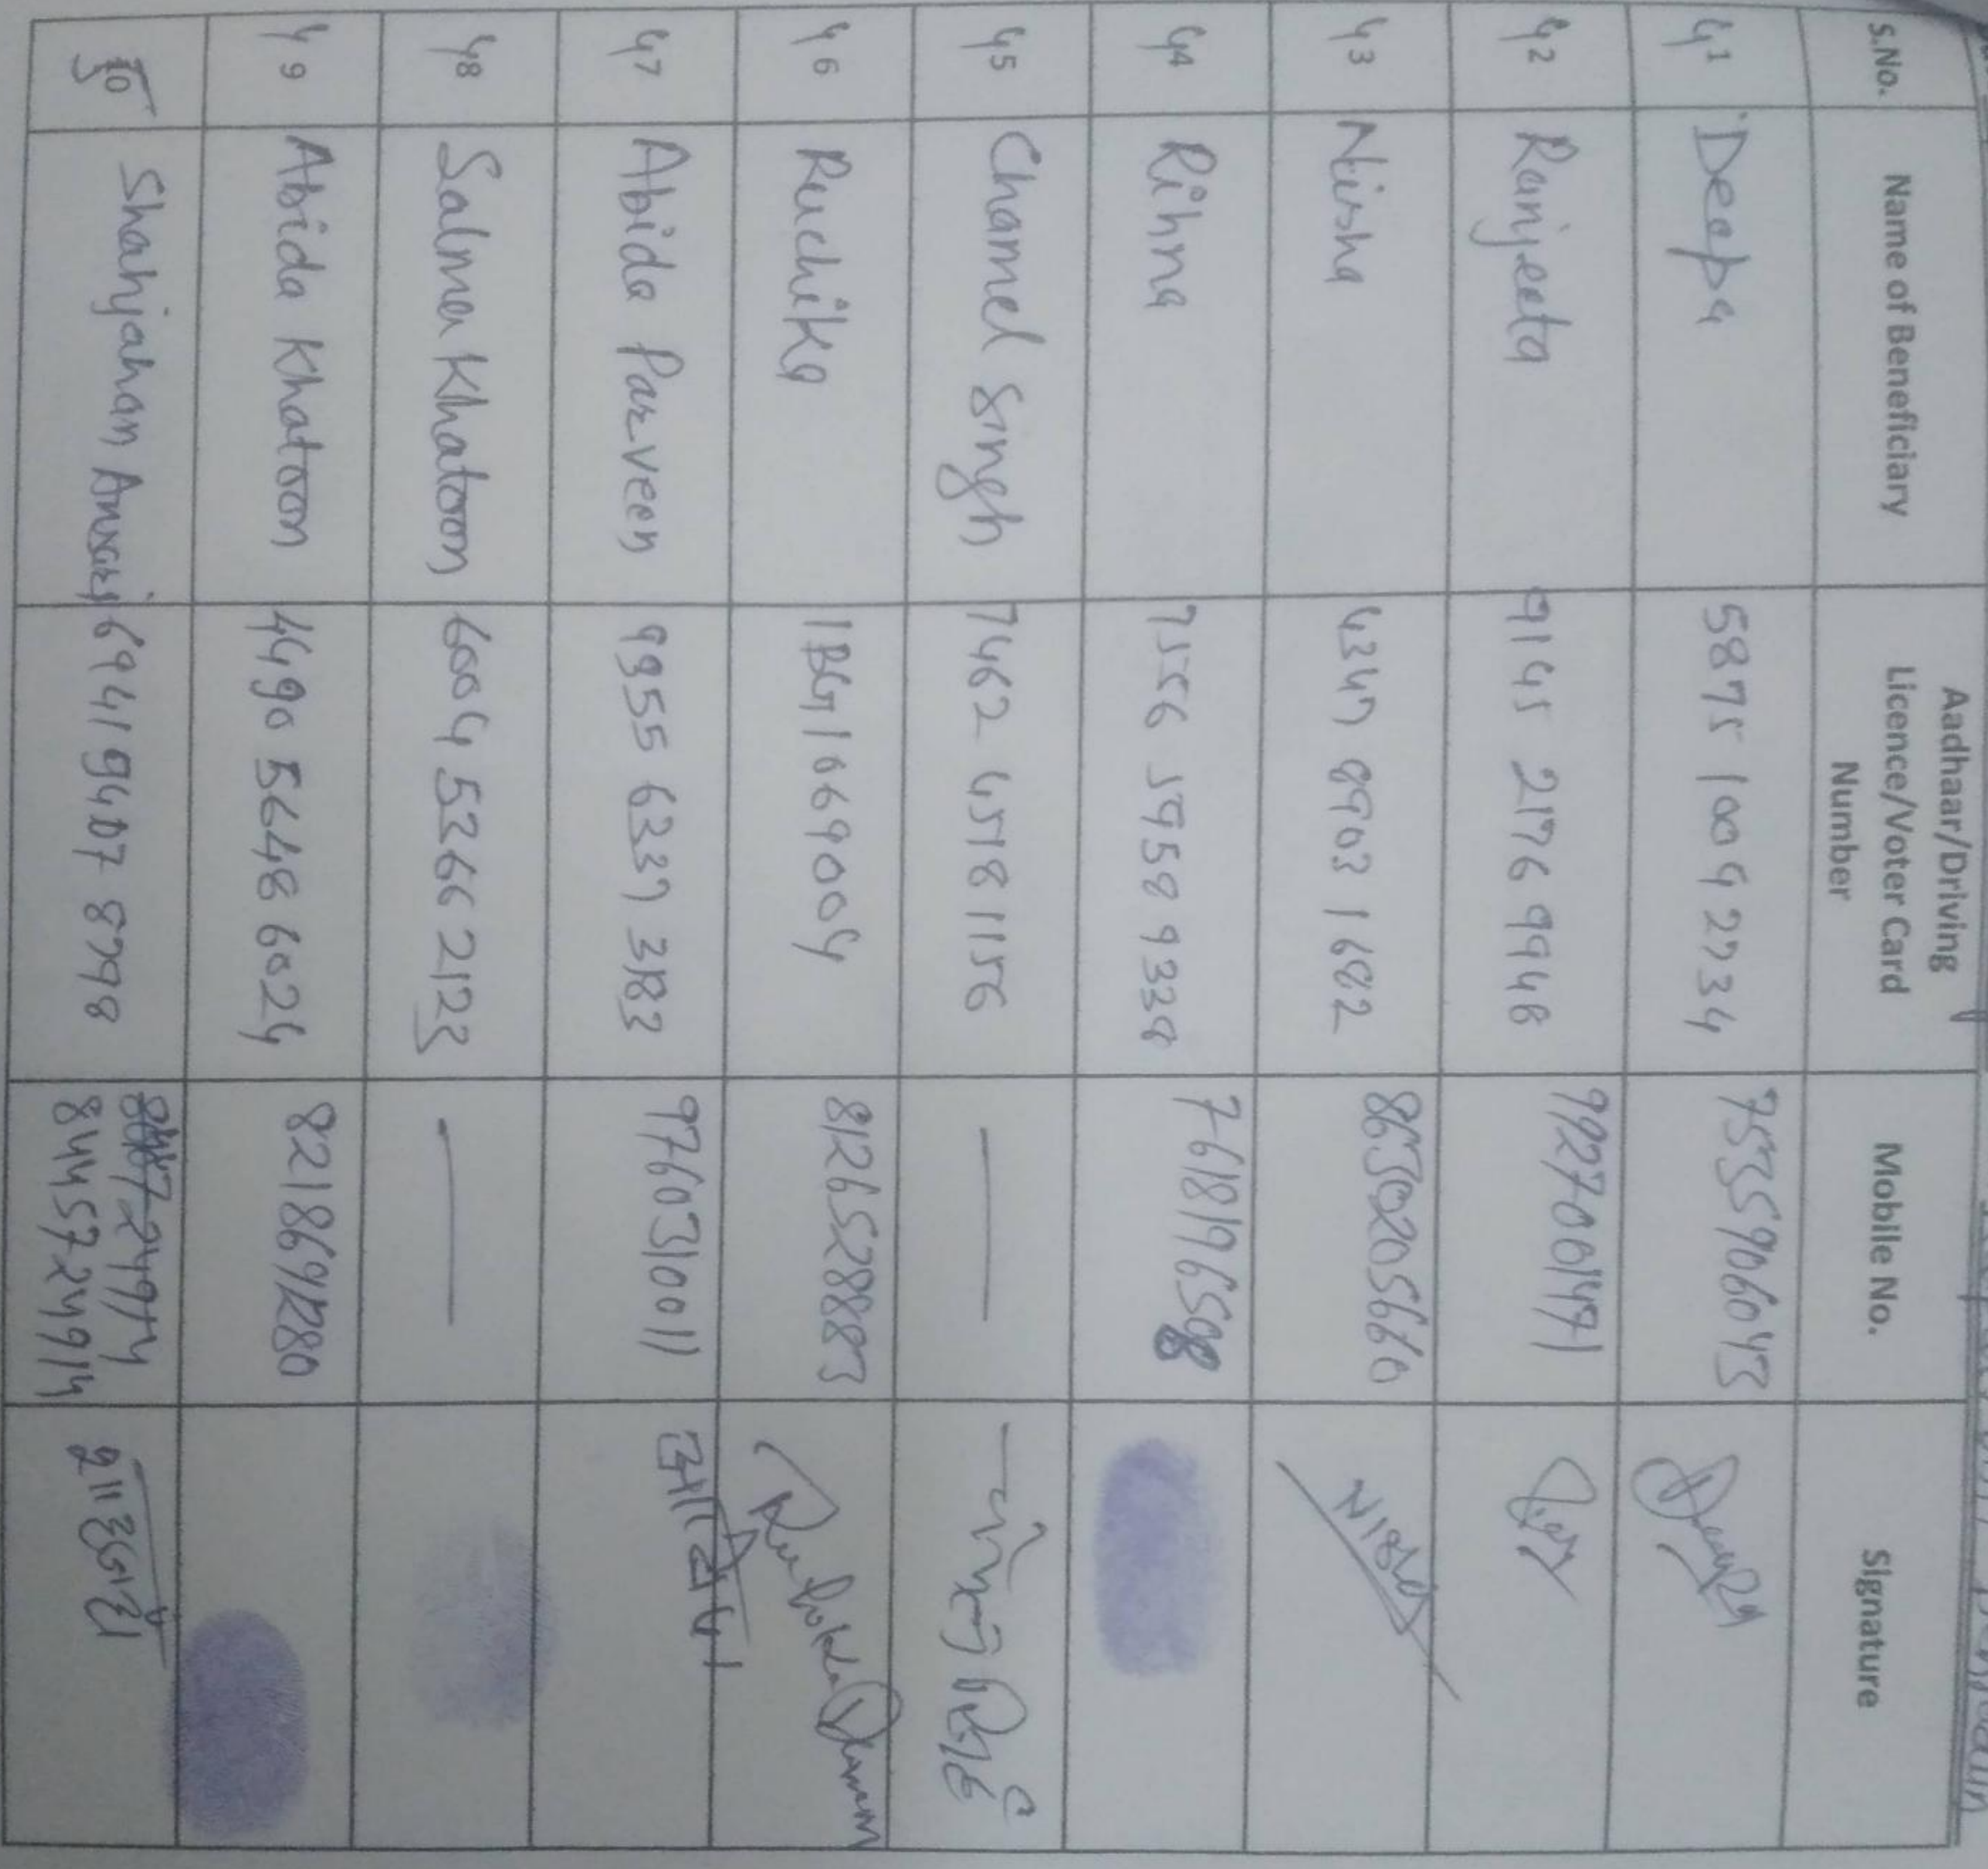 S.No. Name of Beneficiary Aadhaar/Driving Licence/Voter Card Number Mobile No. Signature
41 Deepa 5875 1009 2734 7535906043
42 Ranjeeta 9145 2176 9948 9927001471
43 Nisha 4347 8903 1682 8650205660 NISha
44 Rihna 7556 5958 9338
45 Charmel Singh 7462 4518 1156 —
46 Ruchika IBG1669004 8126528883
47 Abida Parveen 9955 6337 3183 9760310011
48 Salma Khatoon 6004 5366 2123 —
49 Abida Khatoon 4490 5648 6024 8218691280
50 Shahjahan Ansari 6941 9407 8798
8445724914 शाहजहाँ